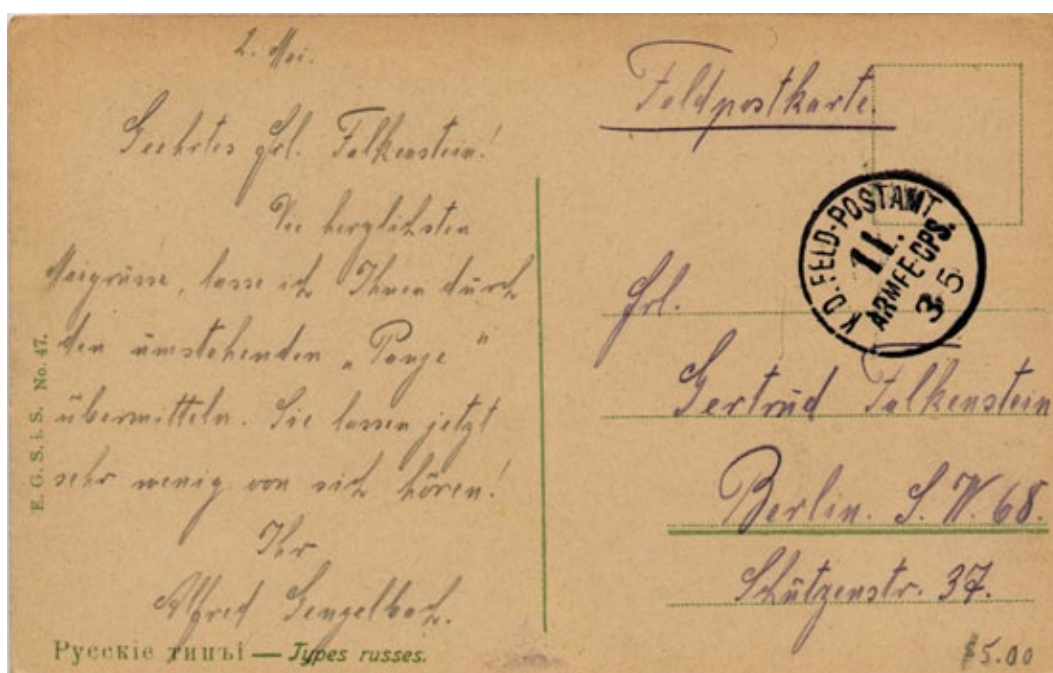 2. Mai.
Geehrtes Frl. Falkenstein!
Die herzlichsten
Maigrüsse, lasse ich Ihnen durch
den umstehenden „Panje“
übermitteln. Sie lassen jetzt
sehr wenig von sich hören!
Ihr
Alfred Gengelbach.
E. G. S. i. S. No. 47.
Русскіе типы — Types russes.
Feldpostkarte.
K. D. FELD-POSTAMT
11.
ARMEE-CPS.
3 5
Frl.
Gertrud Falkenstein
Berlin. S. W. 68.
Schützenstr. 37.
$5.00